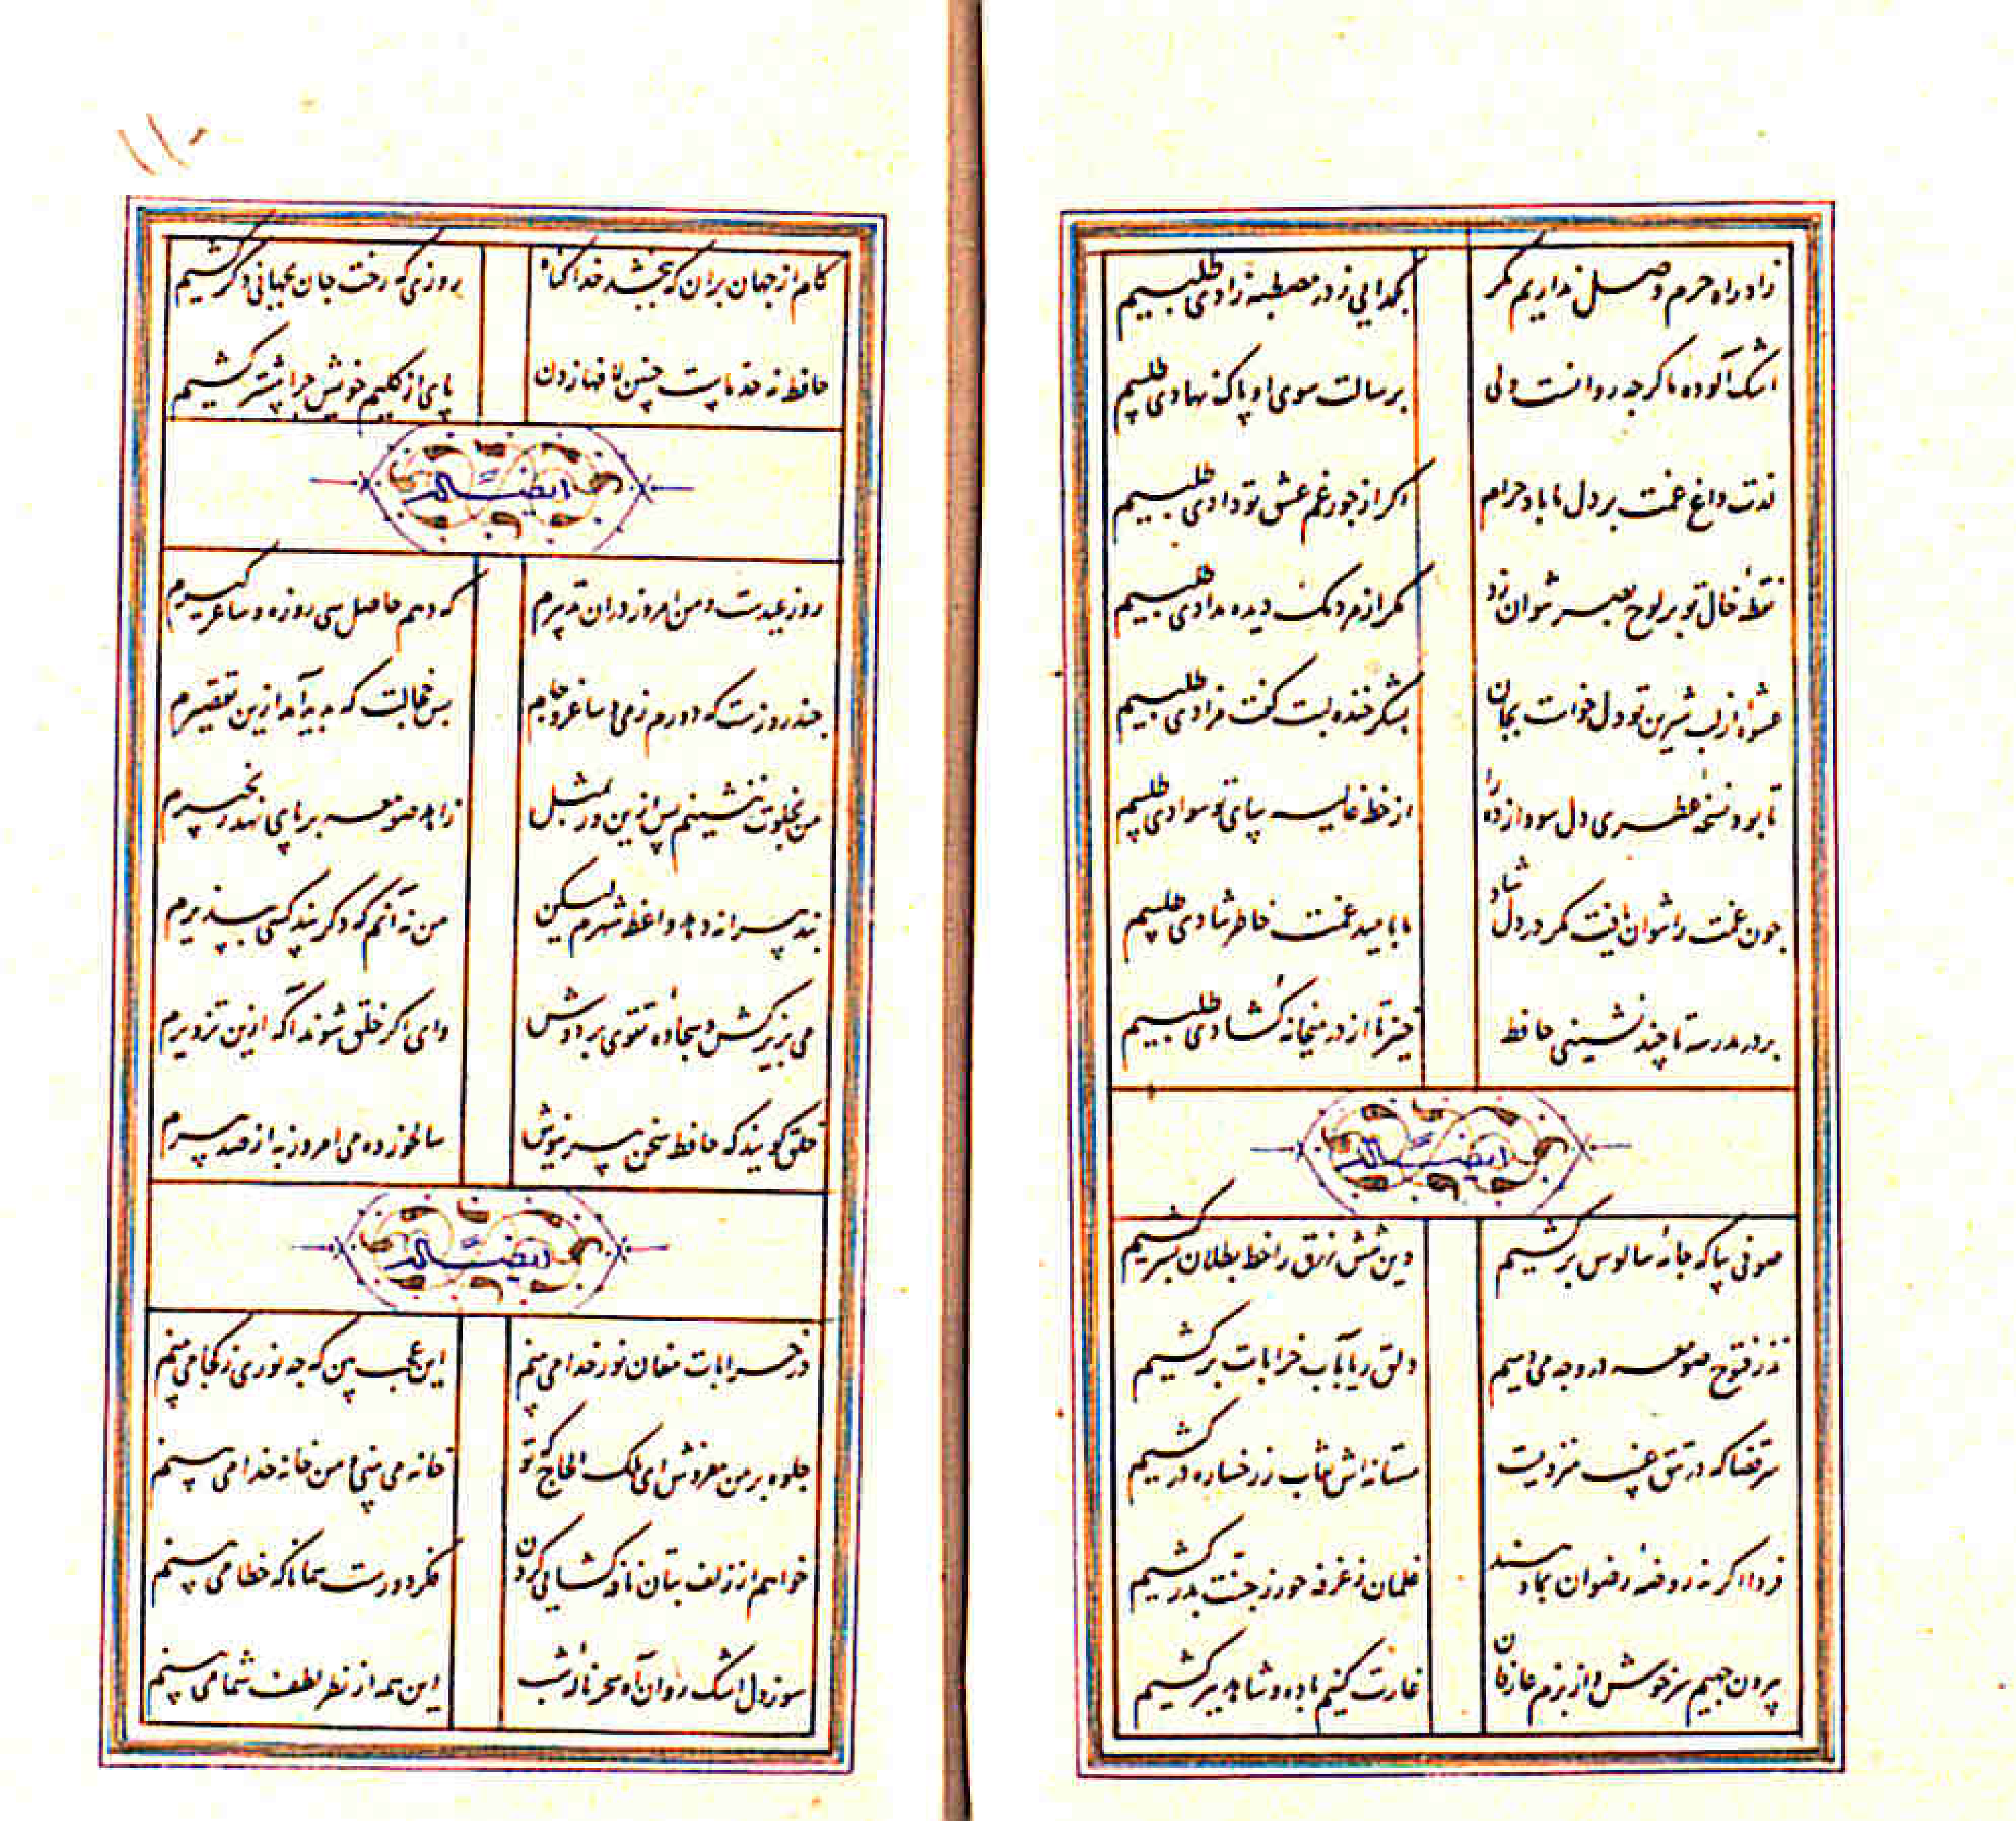 زاد راه حرم وصل نداریم مگر
بگدایی ز در مصطبه زادی طلبیم
اشک آلوده ما گرچه روانست ولی
برسالت سوی او پاک نهادی طلبیم
لذت داغ غمت بر دل ما باد حرام
اگر از جور غم عشق تو دادی طلبیم
نقطه خال تو بر لوح بصر نتوان زد
مگر از مردمک دیده مدادی طلبیم
عشوه از لب شیرین تو دل خواست بجان
بشکر خنده لبت گفت مزادی طلبیم
تا بود نسخه عطری دل سودازده را
از خط غالیه سای تو سوادی طلبیم
چون غمت را نتوان یافت مگر در دل شاد
ما بامید غمت خاطر شادی طلبیم
بر در مدرسه تا چند نشینی حافظ
خیز تا از در میخانه گشادی طلبیم
ایضاً له
صوفی بیا که جامه سالوس برکشیم
وین نقش زرق را خط بطلان بسر کشیم
نذر فتوح صومعه در وجه می نهیم
دلق ریا بآب خرابات برکشیم
سر قضا که در تتق غیب منزویست
مستانه اش نقاب ز رخساره درکشیم
فردا اگر نه روضه رضوان بما دهند
غلمان ز غرفه حور ز جنت بدر کشیم
بیرون جهیم سرخوش و از بزم عارفان
غارت کنیم باده و شاهد ببر کشیم
۱۱۰
کام از جهان بران که ببخشد خدا گناه
روزی که رخت جان بجهانی دگر کشیم
حافظ نه حد ماست چنین لافها زدن
پای از گلیم خویش چرا پیشتر کشیم
ایضاً له
روز عیدست و من امروز دران تدبیرم
که دهم حاصل سی روزه و ساغر گیرم
چند روزست که دورم ز می و ساغر و جام
بس خجالت که پدید آمد ازین تقصیرم
من بخلوت ننشینم پس ازین ور بمثل
زاهد صومعه بر پای نهد زنجیرم
پند پیرانه دهد واعظ شهرم لیکن
من نه آنم که دگر پند کسی بپذیرم
می بزیر کش و سجاده تقوی بر دوش
وای اگر خلق شوند آگه ازین تزویرم
خلق گویند که حافظ سخن پیر نیوش
سالخورده می امروز به از صد پیرم
ایضاً له
در خرابات مغان نور خدا می بینم
این عجب بین که چه نوری ز کجا می بینم
جلوه بر من مفروش ای ملک الحاج که تو
خانه می بینی و من خانه خدا می بینم
خواهم از زلف بتان نافه گشایی کردن
فکر دورست همانا که خطا می بینم
سوز دل اشک روان آه سحر ناله شب
این همه از نظر لطف شما می بینم